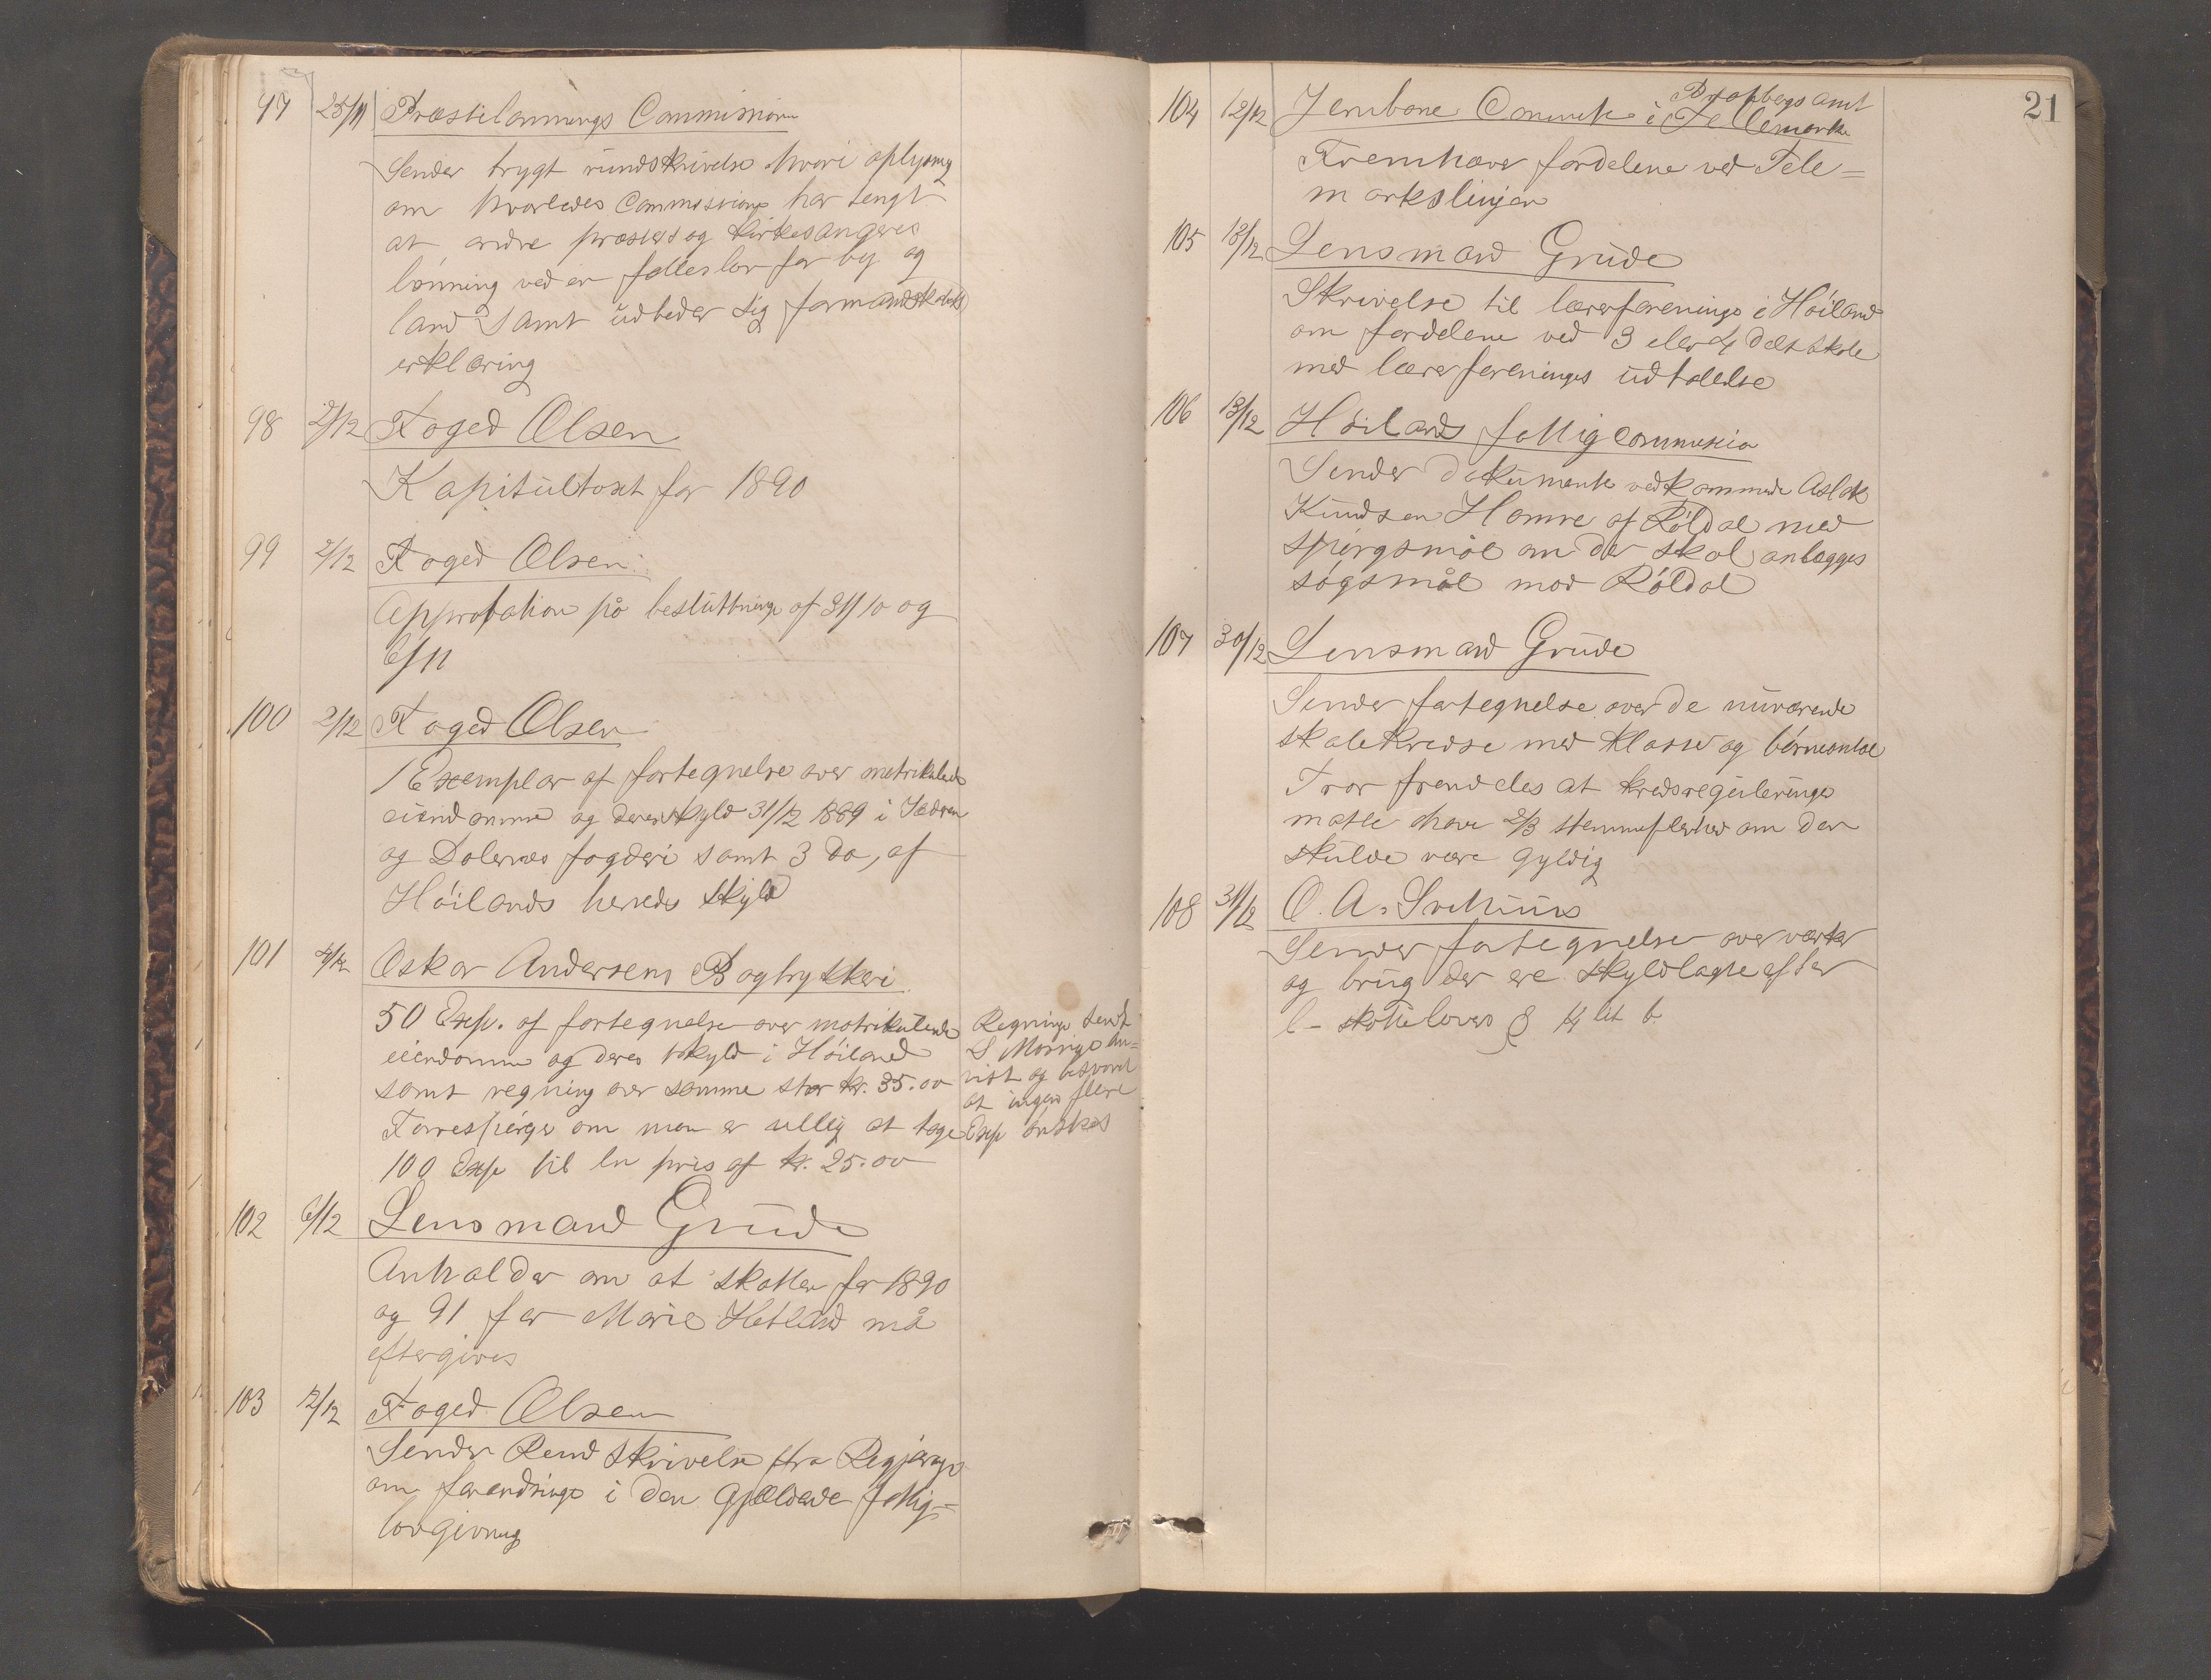 97 25/11 Præstelønnings Commission
Sender trygt rundskrivelse hvori oplysning
om hvorledes Commissionen har tengt
at ændre præsters og kirkesangeres
lønning ved en felleslov for by og
land samt udbeder sig formandskabets
erklæring
98 2/12 Foged Olsen
Kapitultaxt for 1890
99 2/12 Foged Olsen
Approbation på besluttninge af 31/10 og
6/11
100 2/12 Foged Olsen
1 Exemplar af fortegnelse over matrikulerede
eiendomme og deres skyld 31/12 1889 i Jæderen
og Dalernes fogderi samt 3 do, af
Høilands herreds skyld
101 4/12 Oskar Andersens Bogtrykkeri
50 Exp. af fortegnelse over matrikulerede
eiendomme og deres skyld i Høiland
samt regning over samme stor kr. 35.00
Forrespørger om man er villig at tage
100 Exp til en pris af kr. 25.00
Regninge sendt
S An-
vist og besvaret
at ingen flere
Exp ønskes
102 6/12 Lensmand Grude
Anholder om at skatten for 1890
og 91 for Marie Hetland må
eftergives
103 12/12 Foged Olsen
Sender Rundskrivelse fra Regjeringen
om forandringe i den gjældende fattig-
lovgivning
21
104 12/12 Jernbane Comite i Bratsbergs amt
Tellemarke
Fremhæver fordelene ved Tele-
markslinjen
105 13/12 Lensmand Grude
Skrivelse til lærerforeninge i Høiland
om fordelene ved 3 eler 4 delt skole
med lærerforeninges udtalelse
106 13/12 Høilands fattigcommission
Sender dokumenter vedkommende Aslak
Knudsen Hamre af Røldal med
spørgsmål om der skal anlægges
søgsmål mod Røldal
107 30/12 Lensmand Grude
Sender fortegnelse over de nuværende
skolekredse med klasser og børneantal
Tror fremdeles at kredsreguleringe
måtte have 2/3 stemmeflerhed om den
skulde være gyldig
108 31/12 O. A.
Sender fortegnelse over værker
og brug der ere skyldlagte efter
l- skattelovens § 14 lit b.